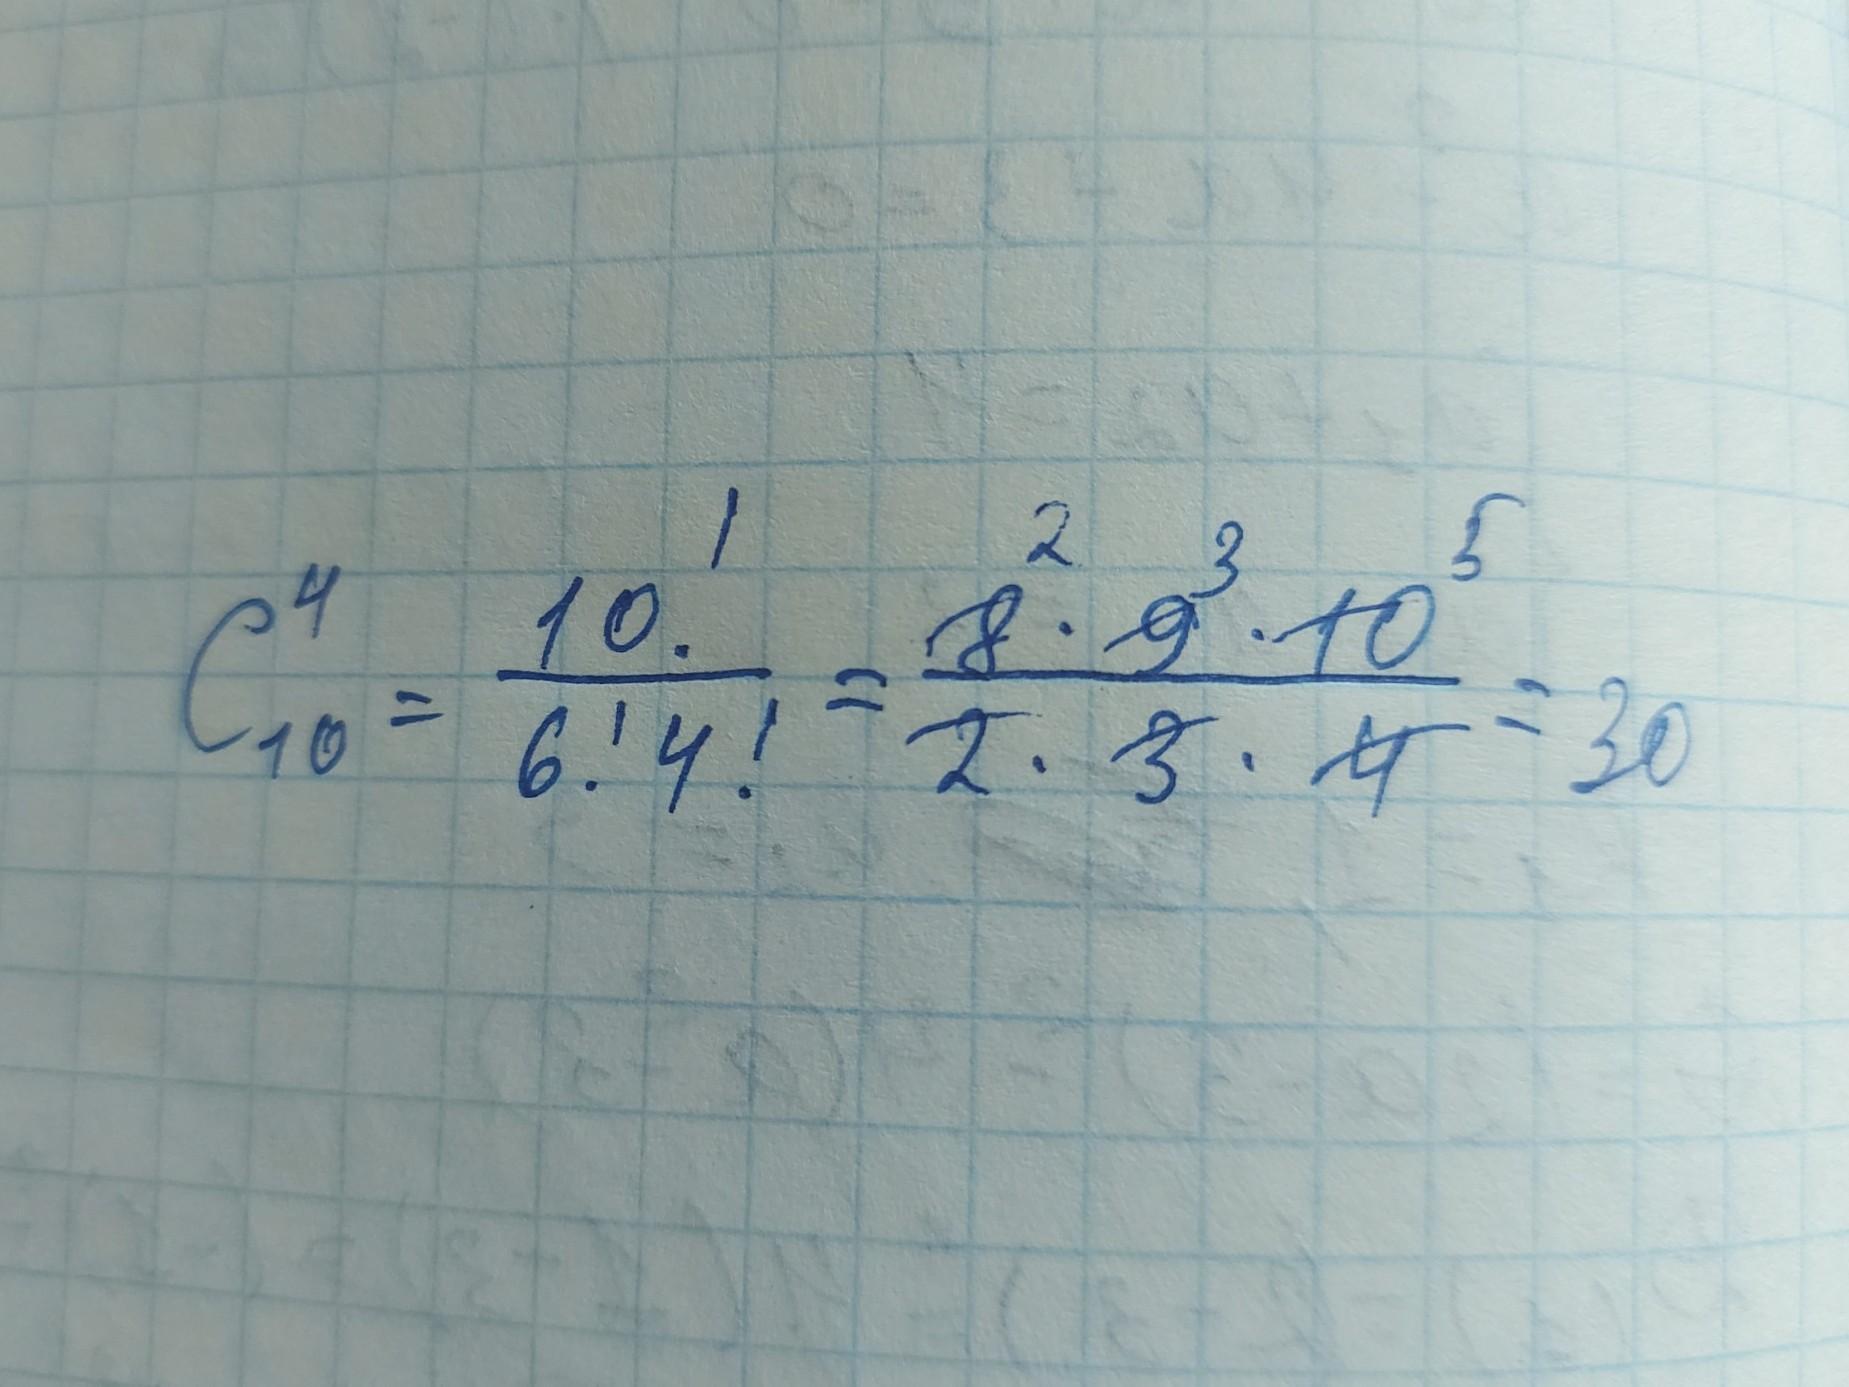 C₁₀⁴ = 10! / 6! 4! = 8² · 9³ · 10⁵ / 2 · 3 · 4 = 30